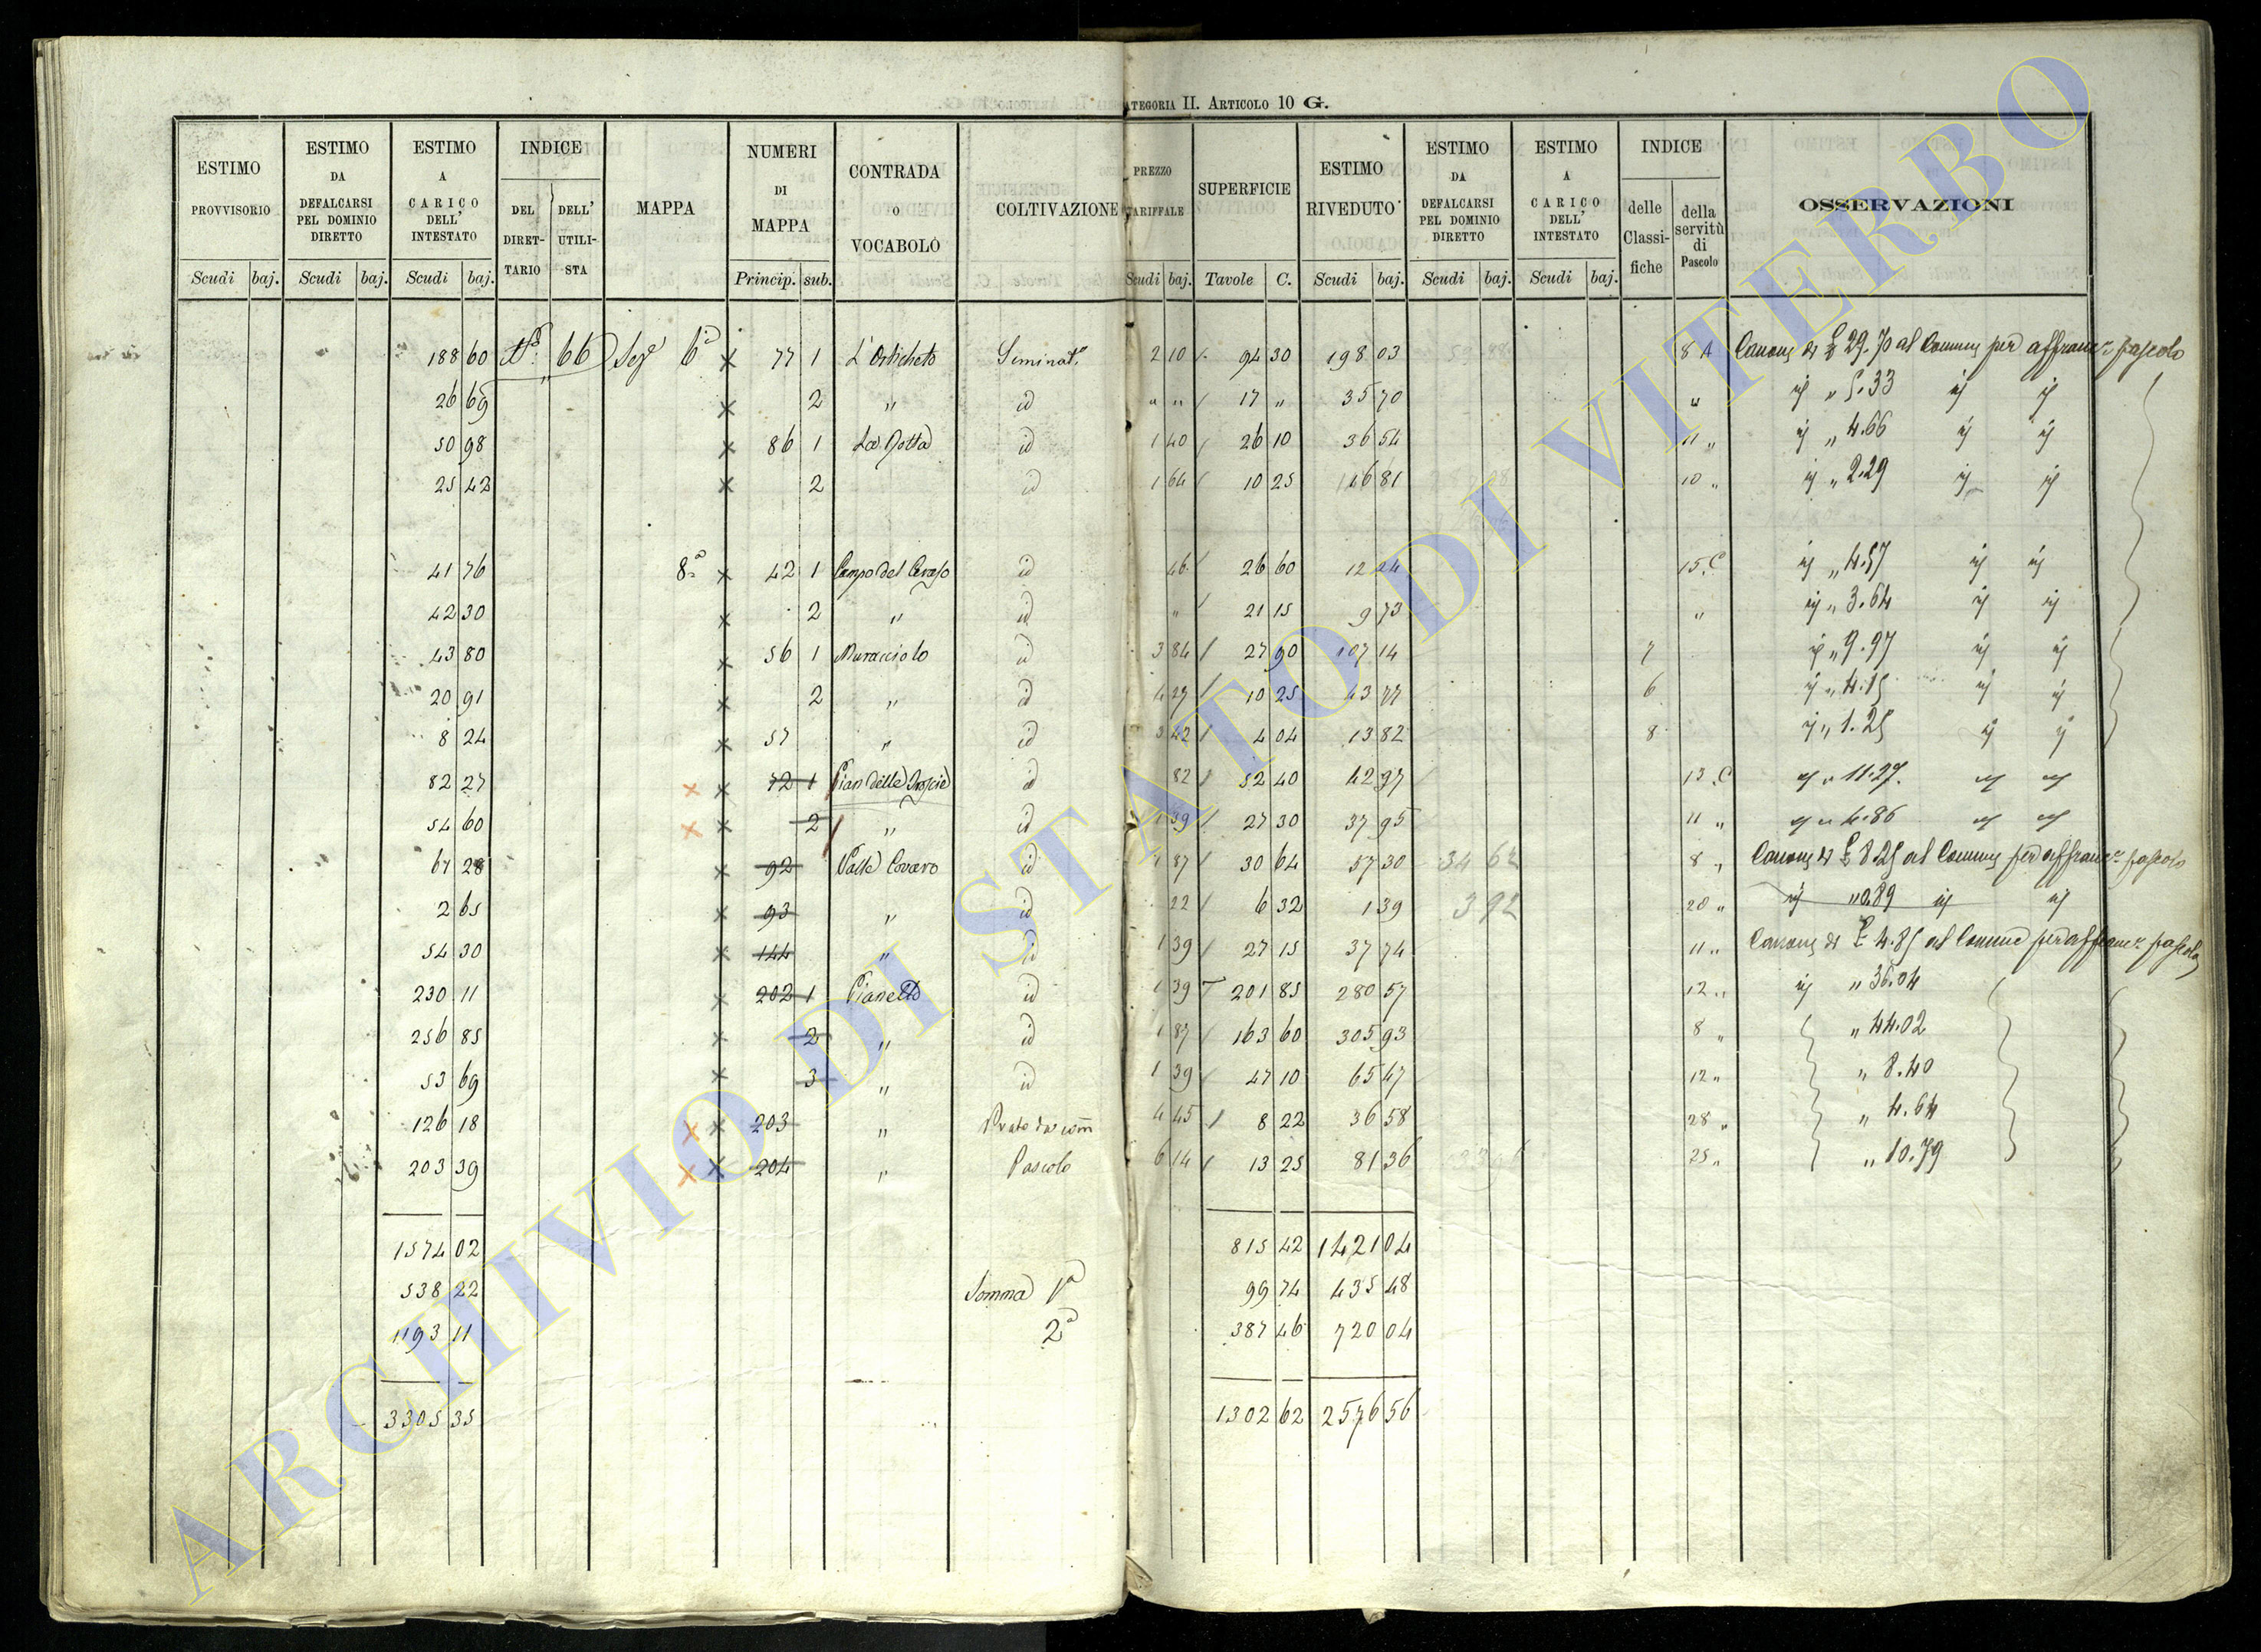 ATEGORIA II. ARTICOLO 10 G.
ESTIMO PROVVISORIO Scudi baj.
ESTIMO DA DEFALCARSI PEL DOMINIO DIRETTO Scudi baj.
ESTIMO A CARICO DELL' INTESTATO Scudi baj.
INDICE DEL DIRETTARIO DELL' UTILISTA
MAPPA
NUMERI DI MAPPA Princip. sub.
CONTRADA O VOCABOLO
COLTIVAZIONE
PREZZO TARIFFALE Scudi baj.
SUPERFICIE Tavole C.
ESTIMO RIVEDUTO Scudi baj.
ESTIMO DA DEFALCARSI PEL DOMINIO DIRETTO Scudi baj.
ESTIMO A CARICO DELL' INTESTATO Scudi baj.
INDICE delle Classifiche della servitù di Pascolo
OSSERVAZIONI
188 60 66 Sez.e 6a x 77 1 L'Orticheto Seminat.o 2 10 94 30 198 03 8 A Canone di £ 29.70 al Comune per affranc.e pascolo
26 69 x 2 " id " " 17 " 35 70 " " 5.33
50 98 x 86 1 La Dotta id 1 40 26 10 36 54 11 " " 4.66
25 42 x 2 id 1 64 10 25 16 81 10 " " 2.29
41 76 8a x 42 1 Campo del Ceraso id 46 26 60 12 24 15 C " 4.57
42 30 x 2 " id " 21 15 9 73 " " 3.64
43 80 x 56 1 Muracciolo id 3 84 27 90 107 14 7 " 9.97
20 91 x 2 " id 4 27 10 25 43 77 6 " 4.15
8 24 x 57 " id 3 42 4 04 13 82 8 " 1.25
82 27 x x 72 1 Pian delle id 82 52 40 42 97 13 C " 11.27
54 60 x x 2 " id 1 39 27 30 37 95 11 " " 4.86
67 28 x 92 Valle Covaro id 1 87 30 64 57 30 34 62 8 " Canone di £ 8.25 al Comune per affranc.e pascolo
2 65 x 93 " id 22 6 32 1 39 3 92 20 " " 0.89
54 30 x 144 " id 1 39 27 15 37 74 11 " Canone di £ 4.85 al Comune per affranc.e pascolo
230 11 x 202 1 Pianetto id 1 39 201 85 280 57 12 " " 36.04
256 85 x 2 " id 1 87 163 60 305 93 8 " " 44.02
53 69 x 3 " id 1 39 47 10 65 47 12 " " 8.40
126 18 x x 203 " Prato 4 45 8 22 36 58 28 " " 4.64
203 39 x x 204 " Pascolo 6 14 13 25 81 36 25 " " 10.79
1574 02 815 42 1421 04
538 22 Somma 1a 99 74 435 48
1193 11 2a 387 46 720 04
3305 35 1302 62 2576 56
ARCHIVIO DI STATO DI VITERBO